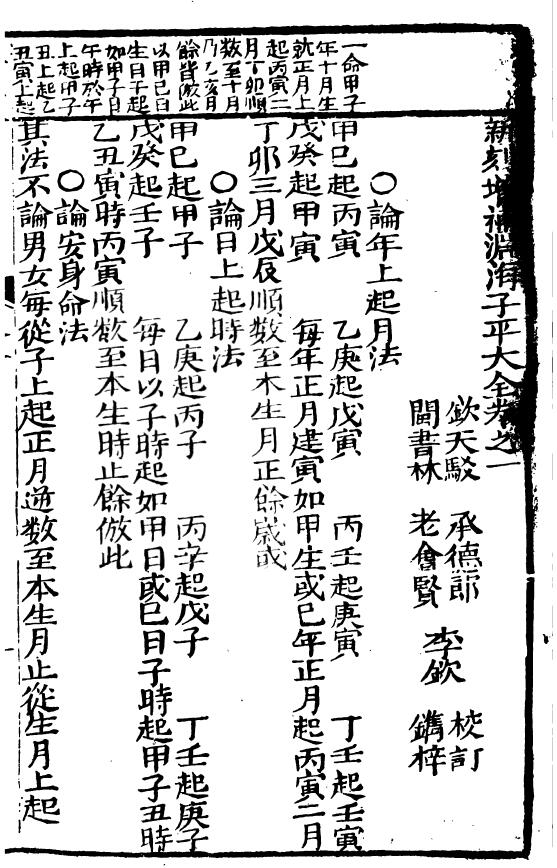 新刻增補淵海子平大全卷之一
欽天駁 承德郎 李欽 校訂
閩書林 老會賢 鐫梓
一命甲子
年十月生
就正月上
起丙寅二
月丁卯順
数至十月
乃乙亥月
餘皆倣此
以甲己日
生日子起
如甲子日
午時於午
上起甲子
丑上起乙
丑寅上起
○論年上起月法
甲巳起丙寅 乙庚起戊寅 丙壬起庚寅 丁壬起壬寅
戊癸起甲寅 每年正月建寅如甲生或巳年正月起丙寅二月
丁卯三月戊辰順数至木生月正餘歲或
○論日上起時法
甲巳起甲子 乙庚起丙子 丙辛起戊子 丁壬起庚子
戊癸起壬子 每日以子時起如甲日或巳日子時起甲子丑時
乙丑寅時丙寅順欲至本生時止餘倣此
○論安身命法
其法不論男女每從子上起正月逆数至本生月止從生月上起